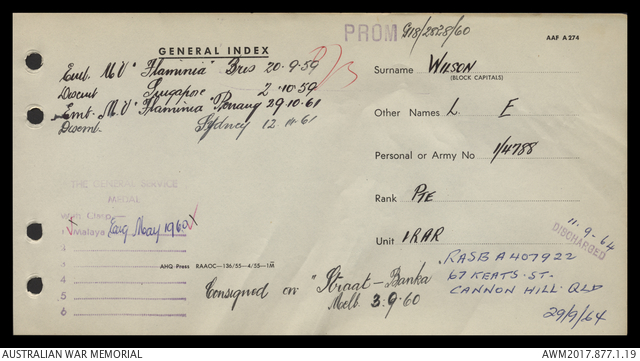 PROM G18/2828/60
AAF A 274
GENERAL INDEX
Emb. M.V "Flaminia" Bris 20-9-59
Disemb Singapore 2.10.59
Emb. M.V "Flaminia" Penang 29.10.61
Disemb. Sydney 12.11.61
Surname WILSON
(BLOCK CAPITALS)
Other Names L. E
Personal or Army No 1/4788
Rank PTE
Unit 1RAR
11-9-64
DISCHARGED
THE GENERAL SERVICE
MEDAL
With Clasp—
1 Malaya Earg May 1960
2
3
4
5
6
AHQ Press RAAOC—136/55—4/55—1M
Consigned on "Straat-Banka
Melb 3.9.60
RASB A407922
67 KEATS. ST.
CANNON HILL. QLD
29/9/64
© AUSTRALIAN WAR MEMORIAL
AWM2017.877.1.19